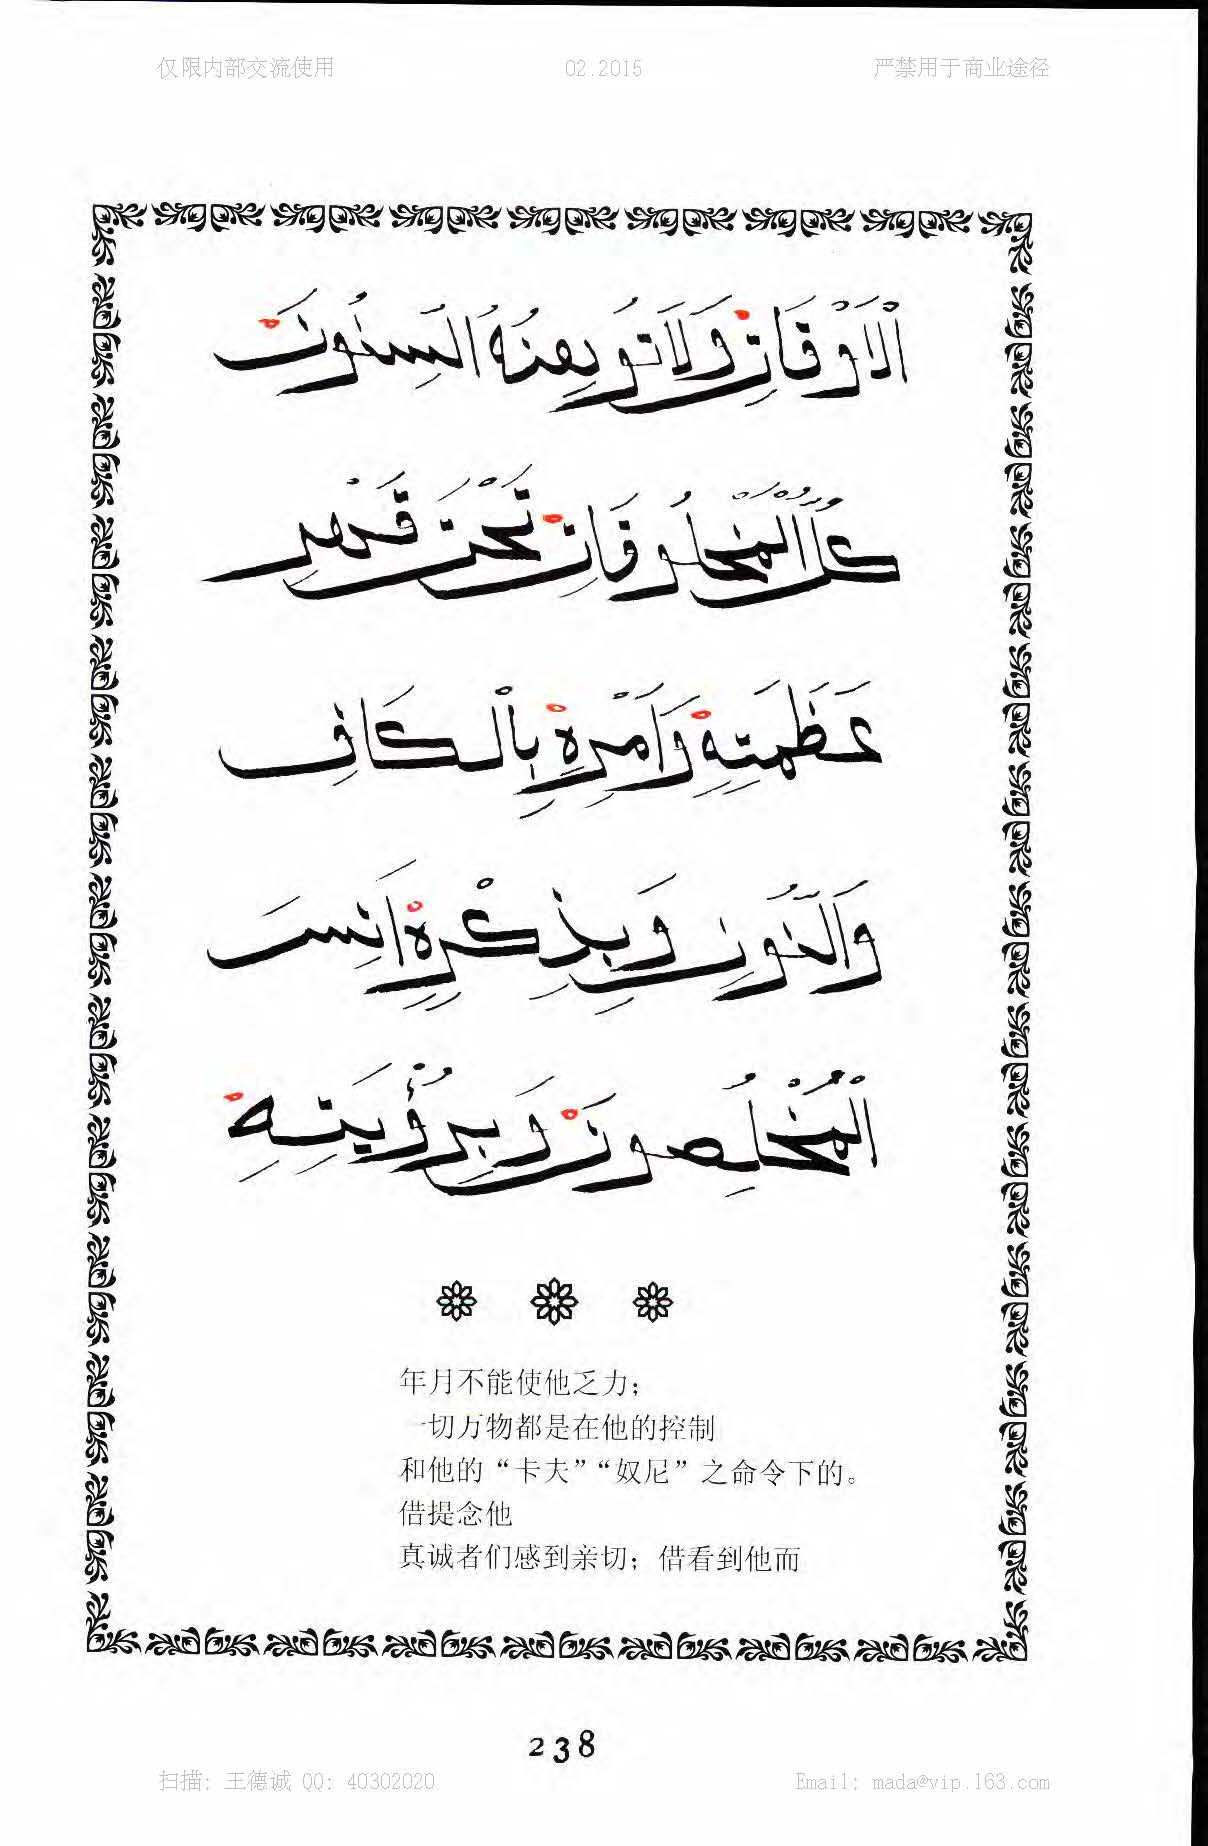 仅限内部交流使用 02.2015 严禁用于商业途径
اَلْاَوْقَاتِ وَلَا تُوهِنُهُ السِّنُونَ
كُلُّ الْمَخْلُوقَاتِ تَحْتَ قَهْرِ
عَظَمَتِهِ وَاَمْرِهِ بِالْكَافِ
وَالنُّونِ وَبِذِكْرِهِ اَنِسَ
الْمُخْلِصُونَ وَبِرُؤْيَتِهِ
年月不能使他乏力；
一切万物都是在他的控制
和他的“卡夫”“奴尼”之命令下的。
借提念他
真诚者们感到亲切；借看到他而
238
扫描: 王德诚 QQ: 40302020 Email: mada@vip.163.com